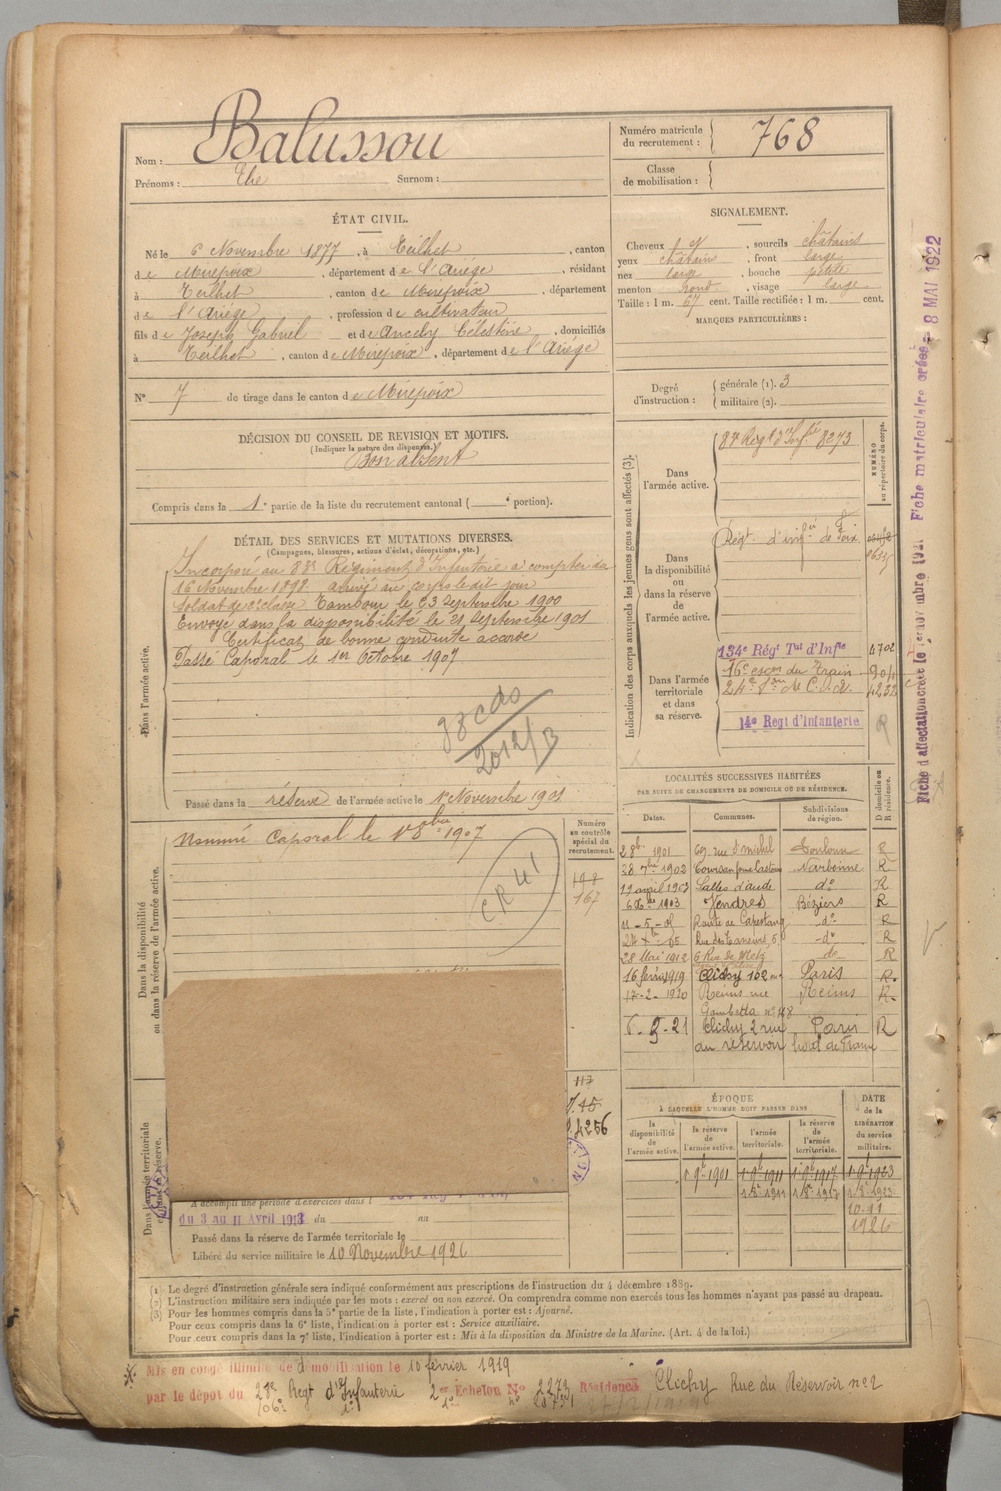 Nom : Balussou
Prénoms : Elie Surnom :
Numéro matricule du recrutement : 768
Classe de mobilisation :
ÉTAT CIVIL.
Né le 6 Novembre 1877, à Teilhet, canton
de Mirepoix, département de l'Ariége, résidant
à Teilhet, canton de Mirepoix, département
de l'Ariége, profession de cultivateur
fils de Joseph Gabriel et de Ancely Célestine, domiciliés
à Teilhet, canton de Mirepoix, département de l'Ariége
N° 7 de tirage dans le canton de Mirepoix
SIGNALEMENT.
Cheveux , sourcils châtains
yeux châtains, front large
nez large, bouche petite
menton rond, visage large
Taille : 1 m. 67 cent. Taille rectifiée : 1 m. cent.
MARQUES PARTICULIÈRES :
Degré d'instruction : générale (1). 3
militaire (2).
DÉCISION DU CONSEIL DE REVISION ET MOTIFS.
(Indiquer la nature des dispenses.)
Bon absent
Compris dans la 1e partie de la liste du recrutement cantonal ( portion).
DÉTAIL DES SERVICES ET MUTATIONS DIVERSES.
(Campagnes, blessures, actions d'éclat, décorations, etc.)
Dans l'armée active.
Incorporé au 88e Régiment d'Infanterie à compter du
16 Novembre 1898 arrivé au corps le dit jour
soldat de 2e classe Tambour le 23 Septembre 1900
Envoyé dans la disponibilité le 21 Septembre 1901
Certificat de bonne conduite accordé
Passé Caporal le 1er Octobre 1907
Passé dans la réserve de l'armée active le 1er Novembre 1901
Dans la disponibilité ou dans la réserve de l'armée active.
Nommé Caporal le 1er 8bre 1907
CR 41
Numéro au contrôle spécial du recrutement.
167
117
4256
Indication des corps auxquels les jeunes gens sont affectés (3).
NUMÉRO au répertoire du corps.
Dans l'armée active.
88e Régt d'Inftie 8273
Dans la disponibilité ou dans la réserve de l'armée active.
Régt d'infie de Foix
Dans l'armée territoriale et dans sa réserve.
134e Régt Tal d'Infie 4702
16e escon du Train
14e Regt d'Infanterie R
LOCALITÉS SUCCESSIVES HABITÉES
PAR SUITE DE CHANGEMENTS DE DOMICILE OU DE RÉSIDENCE.
Dates. Communes. Subdivisions de région. D domicile ou R résidence.
1901 69 rue St michel Toulouse R
28 7bre 1902 Narbonne R
19 avril 1903 Salles d'aude do R
1903 Vendres Béziers R
11-5-05 Route de Capestang do R
05 Rue des Tanneurs, 5 do R
28 Mai 1912 6 Rue de Metz do R
16 février 1919 Clichy 102 Paris R.
17-2-1920 Reims rue Reims R.
Gambetta n° 168
6-5-21 Clichy 2 rue Paris R
du réservoir
ÉPOQUE
À LAQUELLE L'HOMME DOIT PASSER DANS
la disponibilité de l'armée active. la réserve de l'armée active. l'armée territoriale. la réserve de l'armée territoriale.
DATE de la LIBÉRATION du service militaire.
1 9b 1901 1 9b 1911 1 9b 1917 1 9b 1923
10-11
1926
Dans l'armée territoriale et dans sa réserve.
A accompli une période d'exercices dans l
du 3 au 11 Avril 1913 du au
Passé dans la réserve de l'armée territoriale le
Libéré du service militaire le 10 Novembre 1926
(1) Le degré d'instruction générale sera indiqué conformément aux prescriptions de l'instruction du 4 décembre 1889.
(2) L'instruction militaire sera indiquée par les mots : exercé ou non exercé. On comprendra comme non exercés tous les hommes n'ayant pas passé au drapeau.
(3) Pour les hommes compris dans la 5e partie de la liste, l'indication à porter est : Ajourné.
Pour ceux compris dans la 6e liste, l'indication à porter est : Service auxiliaire.
Pour ceux compris dans la 7e liste, l'indication à porter est : Mis à la disposition du Ministre de la Marine. (Art. 4 de la loi.)
Mis en congé illimité de démobilisation le 10 février 1919
par le dépot du 28e Regt d'Infanterie 2e Echelon No 2273 Résidence Clichy Rue du Réservoir n° 2
Fiche matriculaire créée = 8 MAI 1922